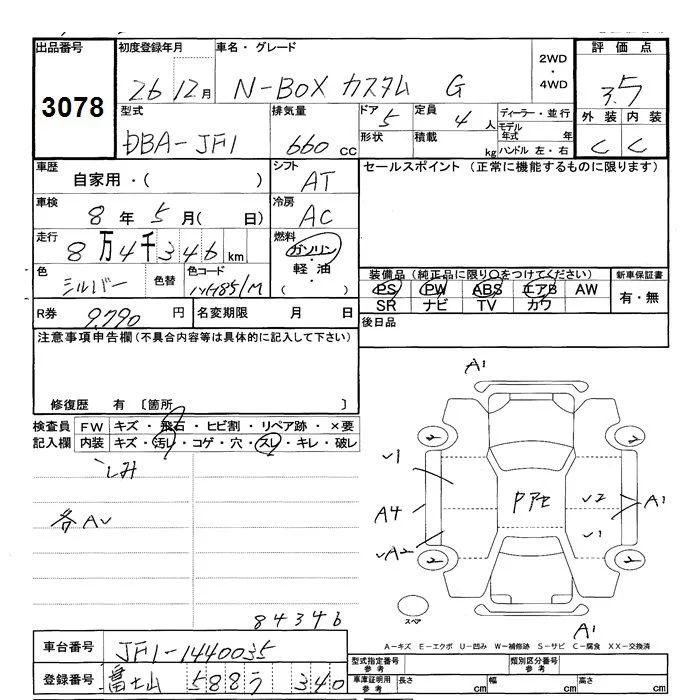 出品番号
3078
初度登録年月
26 12月
車名・グレード
N-BOX カスタム G
2WD
・
4WD
評価点
3.5
外装 内装
C C
型式
DBA-JF1
排気量
660 cc
ドア
5
定員
4 人
形状
積載
kg
ディーラー・並行
モデル
年式 年
ハンドル 左・右
車歴
自家用・( )
シフト
AT
セールスポイント (正常に機能するものに限ります)
車検
8 年 5 月( 日)
冷房
AC
走行
8万4千346 km
燃料
ガソリン
・
軽油
( )
色
シルバー
色替
色コード
NH851M
装備品 (純正品に限り○をつけてください)
PS PW ABS エアB AW
SR ナビ TV カワ
新車保証書
有・無
R券
9,790 円
名変期限 月 日
後日品
注意事項申告欄 (不具合内容等は具体的に記入して下さい)
修復歴 有 〔箇所 〕
検査員
記入欄
FW キズ・飛石・ヒビ割・リペア跡・×要
内装 キズ・汚レ・コゲ・穴・スレ・キレ・破レ
シミ
各AU
84346
A1
2 2
A4
A2
2
1
A1
2 2
スペア
A1
A-キズ E-エクボ U-凹み W-補修跡 S-サビ C-腐食 XX-交換済
車台番号
JF1-1440035
登録番号
富士山 588 う 340
型式指定番号
参考
類別区分番号
参考
車庫証明用
参考
長さ cm
幅 cm
高さ cm